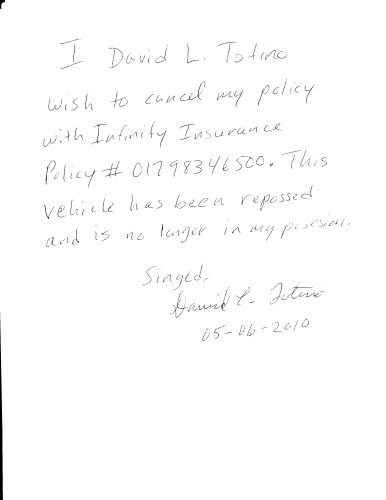 I David L. Totino
wish to cancel my policy
with Infinity Insurance
Policy # 01798346500. This
vehicle has been repossed
and is no longer in my
Singed,
David L. Totino
05-06-2010